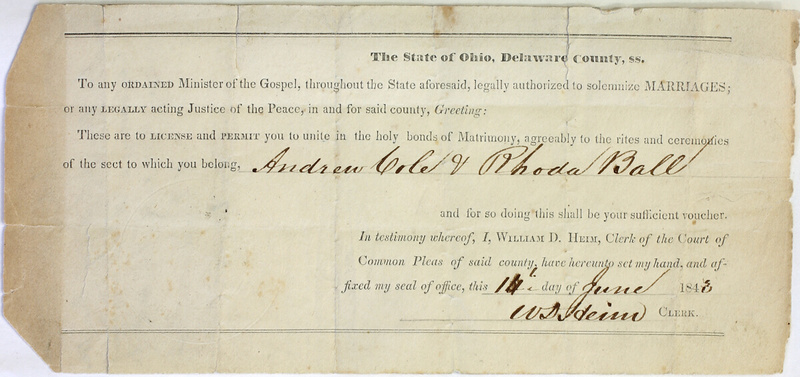 The State of Ohio, Delaware County, ss.
To any ORDAINED Minister of the Gospel, throughout the State aforesaid, legally authorized to solemnize MARRIAGES;
or any LEGALLY acting Justice of the Peace, in and for said county, Greeting:
These are to LICENSE and PERMIT you to unite in the holy bonds of Matrimony, agreeably to the rites and ceremonies
of the sect to which you belong, Andrew Cole & Rhoda Ball
and for so doing this shall be your sufficient voucher.
In testimony whereof, I, WILLIAM D. HEIM, Clerk of the Court of
Common Pleas of said county, have hereunto set my hand, and af-
fixed my seal of office, this 14th day of June 1843
WD Heim CLERK.